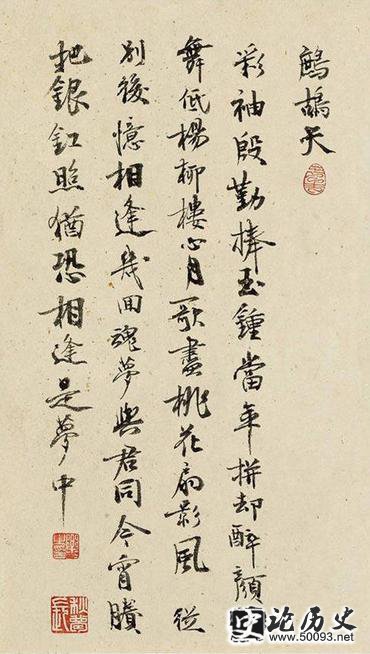 鷓鴣天
彩袖殷勤捧玉鍾當年拼却醉顏
舞低楊柳樓心月歌盡桃花扇影風從
別後憶相逢幾回魂夢與君同今宵賸
把銀釭照猶恐相逢是夢中
论历史
www.50093.net